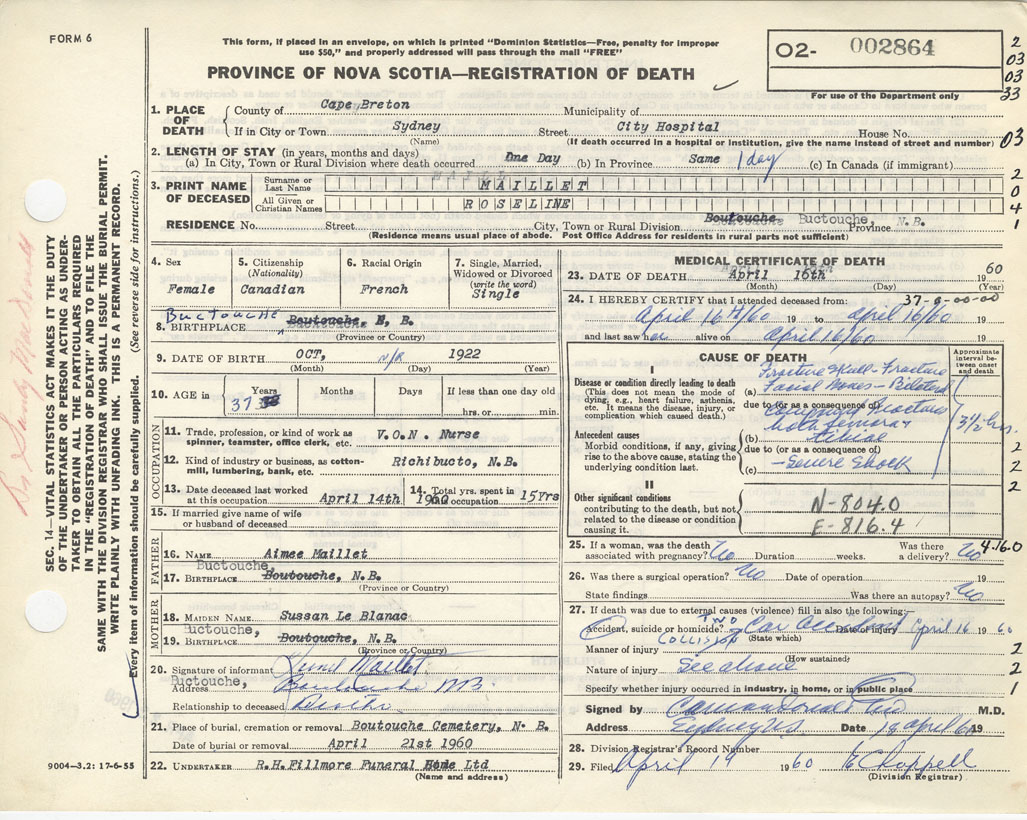 FORM 6
This form, if placed in an envelope, on which is printed "Dominion Statistics—Free, penalty for improper
use $50," and properly addressed will pass through the mail "FREE"
O2- 002864
For use of the Department only
2
03
03
33
PROVINCE OF NOVA SCOTIA—REGISTRATION OF DEATH
1. PLACE OF DEATH
County of Cape Breton Municipality of
If in City or Town Sydney Street City Hospital House No. 03
(Name) (If death occurred in a hospital or institution, give the name instead of street and number)
2. LENGTH OF STAY (in years, months and days)
(a) In City, Town or Rural Division where death occurred One Day (b) In Province Same 1 day (c) In Canada (if immigrant)
3. PRINT NAME OF DECEASED
Surname or Last Name MAILLET
All Given or Christian Names ROSELINE
2
0
4
1
RESIDENCE No. Street City, Town or Rural Division Boutouche, Buctouche, Province N. B.
(Residence means usual place of abode. Post Office Address for residents in rural parts not sufficient)
4. Sex Female
5. Citizenship (Nationality) Canadian
6. Racial Origin French
7. Single, Married, Widowed or Divorced (write the word) Single
8. BIRTHPLACE Buctouche Boutouche, N. B.
(Province or Country)
9. DATE OF BIRTH OCT, N/R 1922
(Month) (Day) (Year)
10. AGE in Years 37 Months Days If less than one day old
hrs. or min.
OCCUPATION
11. Trade, profession, or kind of work as spinner, teamster, office clerk, etc. V.O.N. Nurse
12. Kind of industry or business, as cotton-mill, lumbering, bank, etc. Richibucto, N.B.
13. Date deceased last worked at this occupation April 14th 1960
14. Total yrs. spent in occupation 15Yrs
15. If married give name of wife or husband of deceased
FATHER
16. NAME Aimee Maillet
17. BIRTHPLACE Buctouche, Boutouche, N.B.
(Province or Country)
MOTHER
18. MAIDEN NAME Sussan Le Blanac
19. BIRTHPLACE uctouche, Boutouche, N.B.
(Province or Country)
20. Signature of informant Maillet
Address Buctouche, Bouctouche NB
Relationship to deceased
21. Place of burial, cremation or removal Boutouche Cemetery, N. B.
Date of burial or removal April 21st 1960
22. UNDERTAKER R.H.Fillmore Funeral Home Ltd
(Name and address)
MEDICAL CERTIFICATE OF DEATH
23. DATE OF DEATH April 16th 19 60
(Month) (Day) (Year)
24. I HEREBY CERTIFY that I attended deceased from: 37-0-00-00
April 16th/60 19 to april 16/60 19
and last saw her alive on april 16/60 19
CAUSE OF DEATH
Approximate interval between onset and death
I
Disease or condition directly leading to death
(This does not mean the mode of dying, e.g., heart failure, asthenia, etc. It means the disease, injury, or complication which caused death.)
(a) Fracture Skull - Fracture
Facial Bones - Bilateral
due to (or as a consequence of)
Antecedent causes
Morbid conditions, if any, giving rise to the above cause, stating the underlying condition last.
Compound fractures
both femora &
(b) tibiae
due to (or as a consequence of)
(c) - Severe Shock
3 1/2 hrs.
2
2
2
II
Other significant conditions contributing to the death, but not related to the disease or condition causing it.
N-804.0
E-816.4
25. If a woman, was the death associated with pregnancy? No Duration weeks. Was there a delivery? No 4.16.0
26. Was there a surgical operation? No Date of operation 19
State findings Was there an autopsy? No
27. If death was due to external causes (violence) fill in also the following:
Accident, suicide or homicide? TWO Car accident Date of injury April 16 19 60
COLLISION (State which)
Manner of injury 2
(How sustained)
Nature of injury See above 2
Specify whether injury occurred in industry, in home, or in public place 1
Signed by M.D.
Address Sydney NS Date 18 april 60 19
28. Division Registrar's Record Number
29. Filed April 19 19 60 E Chappell
(Division Registrar)
SEC. 14—VITAL STATISTICS ACT MAKES IT THE DUTY
OF THE UNDERTAKER OR PERSON ACTING AS UNDER-
TAKER TO OBTAIN ALL THE PARTICULARS REQUIRED
IN THE "REGISTRATION OF DEATH" AND TO FILE THE
SAME WITH THE DIVISION REGISTRAR WHO SHALL ISSUE THE BURIAL PERMIT.
WRITE PLAINLY WITH UNFADING INK. THIS IS A PERMANENT RECORD.
Every item of information should be carefully supplied. (See reverse side for instructions.)
9004—3.2: 17-6-55